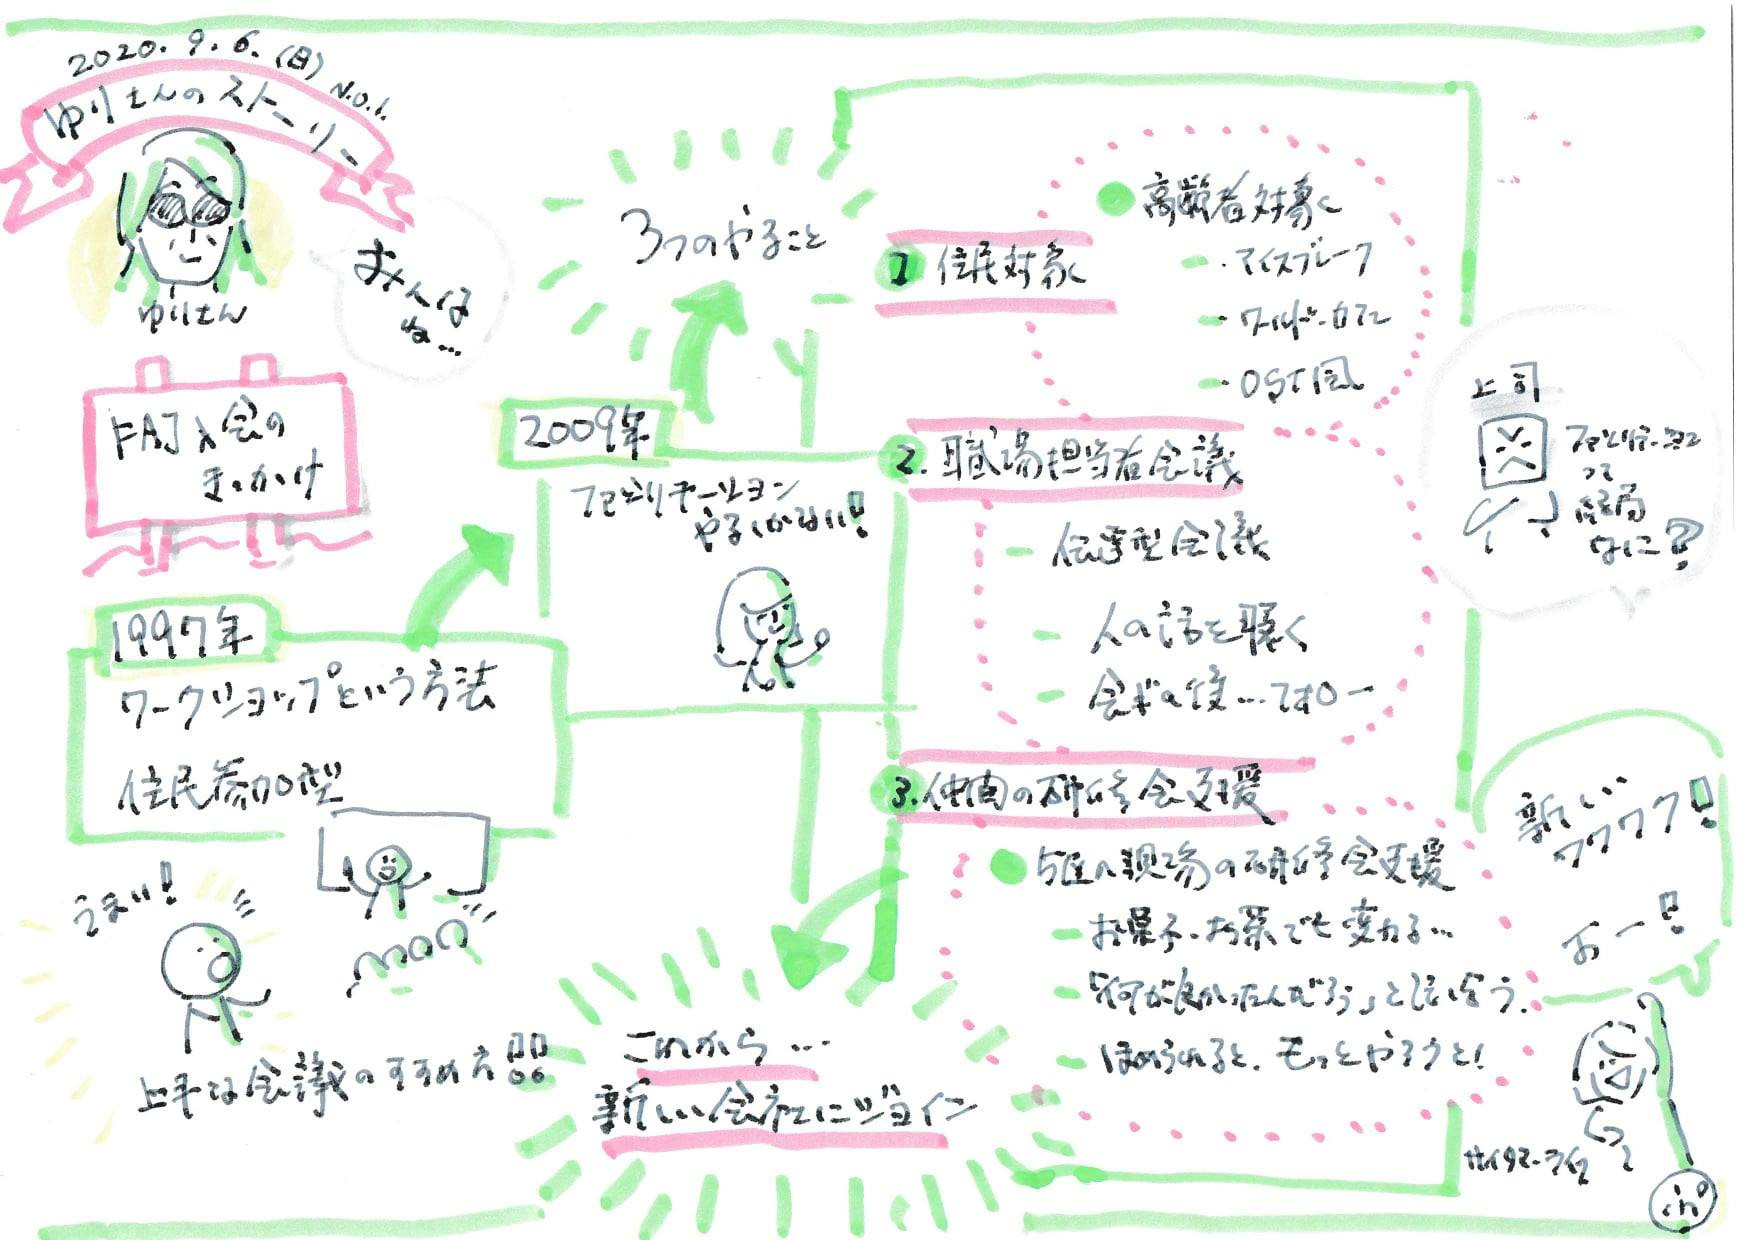 2020. 9. 6. (日)
ゆりさんのストーリー
N.O.1.
ゆりさん
みんなは
ね…
FAJ入会の
きっかけ
1997年
ワークショップという方法
住民参加型
うまい!
上手な会議のすすめ方!!
2009年
ファシリテーション
やるしかない!
3つのやること
1 住民対象
高齢者対象
・アイスブレーク
・ワールド・カフェ
OST風
2. 職場担当者会議
伝達型会議
人の話を聴く
会ギの後…フォロー
3. 仲間の研修会支援
現場の研修会支援
お菓子・お茶でも変わる…
「何が良かったんだろう」と話し合う.
ほめられると、もっとやろうと!
上司
ファシリテーション
って
結局
なに?
新しい
ワクワク!
おー!
これから…
新しい会社にジョイン